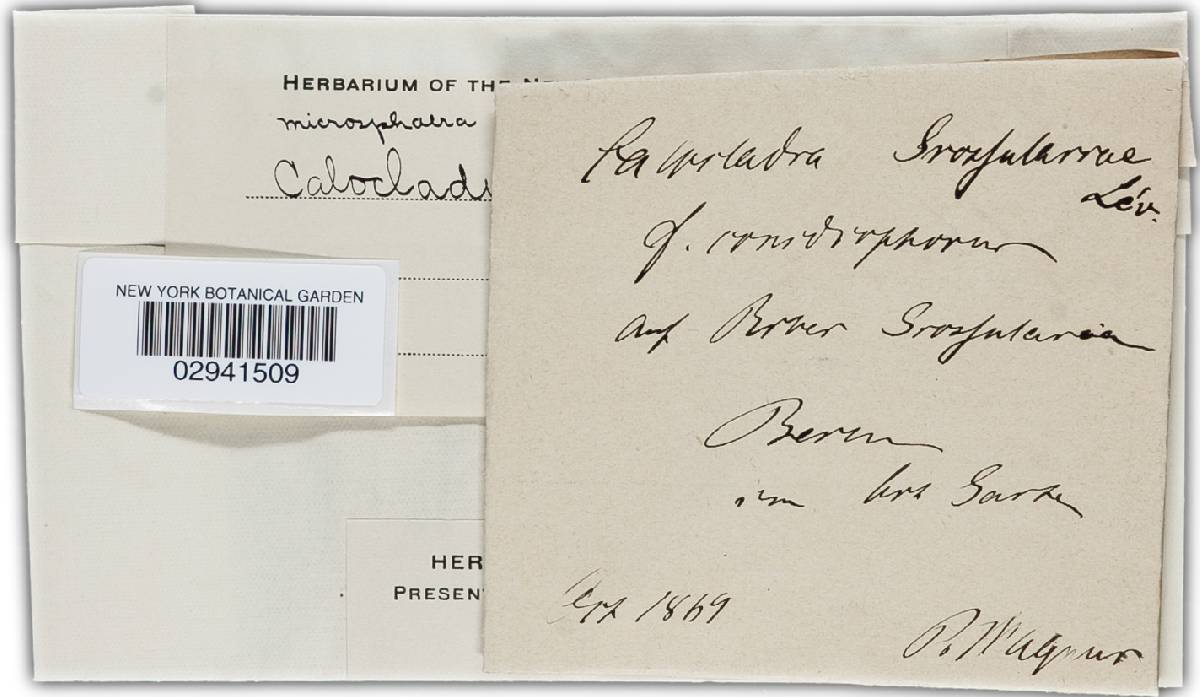 HERBARIUM OF THE
microsphaera
Caloclad
NEW YORK BOTANICAL GARDEN
02941509
HER
PRESEN
Calocladra Grossulariae
Lév.
f. conidiophorum
auf Ribes Grossularia
im bot Garten
Oct 1869
P. Wagner